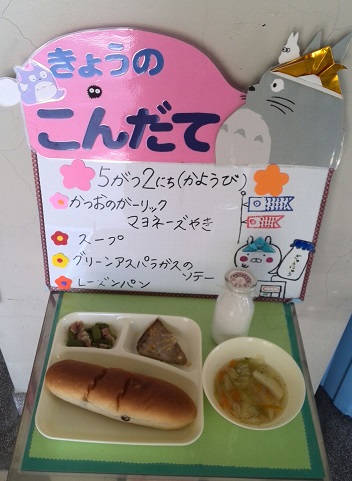 きょうの
こんだて
5がつ2にち(かようび)
かつおのガーリック
マヨネーズやき
スープ
グリーンアスパラガスの
ソテー
レーズンパン